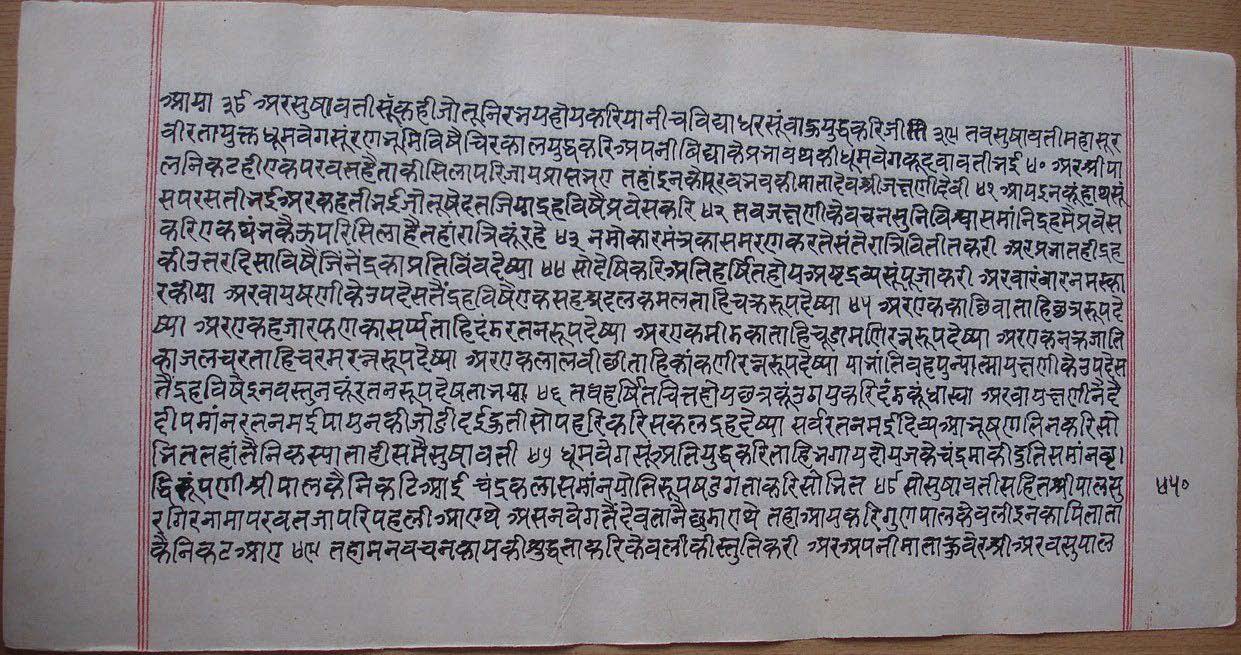 आया ३८ अर सुषावती सूं कही जो तू निरभय होय करि या नीच विद्याधर सूं वाऊ युद्ध करि जी ३९ तव सुषावती महा सूर
वीरता युक्त धूमवेग सूं रणभूमि विषै चिरकाल युद्ध करि अपनी विद्या कै प्रभाव थकी धूमवेग कूं दवावती भई ४० अर श्रीपा
ल निकट ही एक परवत है ताकी सिला परि जाय प्राप्त भए तहां इनके पूरव भव की माता देव श्री जक्षणी देवी ४१ आय इनकूं हाथ सूं
सपरसती भई अर कहती भई जो तू षेद तजि या द्रह विषै प्रवेस करि ४२ तव जक्षणी के वचन सुनि विश्वास मांनि द्रह मै प्रवेस
करि एक थंभ कै ऊपरि सिला है तहां रात्रि कूं रहे ४३ नमोकार मंत्र का समरण करते संते रात्रि वितीत करी अर प्रभात ही द्रह
की उत्तर दिसा विषै जिनेंद्र का प्रतिविंव देष्या ४४ सो देषि करि अति हर्षित होय अष्ट द्रव्य सूं पूजा करी अर वारंवार नमस्का
र कीया अर वा यषणी के उपदेस तैं द्रह विषै एक सहश्र दल कमल ताहि चक्र रूप देष्या ४५ अर एक काछिवा ताहि छत्र रूप दे
ष्या अर एक हजार फण का सर्प्प ताहि दंड रतन रूप देष्या अर एक मीडका ताहि चूडामणि रत्न रूप देष्या अर एक नक्र जाति
का जलचर ताहि चरम रत्न रूप देष्या अर एक लाल वीछी ताहि कांकणी रत्न रूप देष्या या भांति वह पुन्यात्मा यक्षणी के उपदेस
तैं द्रह विषै इन वस्तुन कूं रतन रूप देषता भया ४६ तव हर्षित चित्त होय छत्र कूं उगय करि दंड कूं धास्या अर वा यक्षणी नै दै
दीपमांन रतनमई पायन की जोडी दई हुती सो पहरि करि सकल द्रह देष्या सर्व रतनमई दिव्य आभूषण तिन करि सो
भित तहां तै निकस्या ताही समै सुषावती ४७ धूमवेग सूं प्रति युद्ध करि ताहि भगाय होय जके चंद्रमा की दुति समांन वृ
द्धि रूपणी श्रीपाल कै निकटि आई चंद्रकला समांन योति रूप षडगता करि सोभित ४८ सो सुषावती सहित श्रीपाल सु
रगिर नामा परवत जा परि पहली आए थे असनवेग तैं देवता नै छुडाए थे तहा आय करि गुणपाल केवली इनका पिता ता
कै निकट आए ४९ तहा मन वचन काय की शुद्धता करि केवली की स्तुति करी अर अपनी माता कुवेर श्री अर वसुपाल
४५०